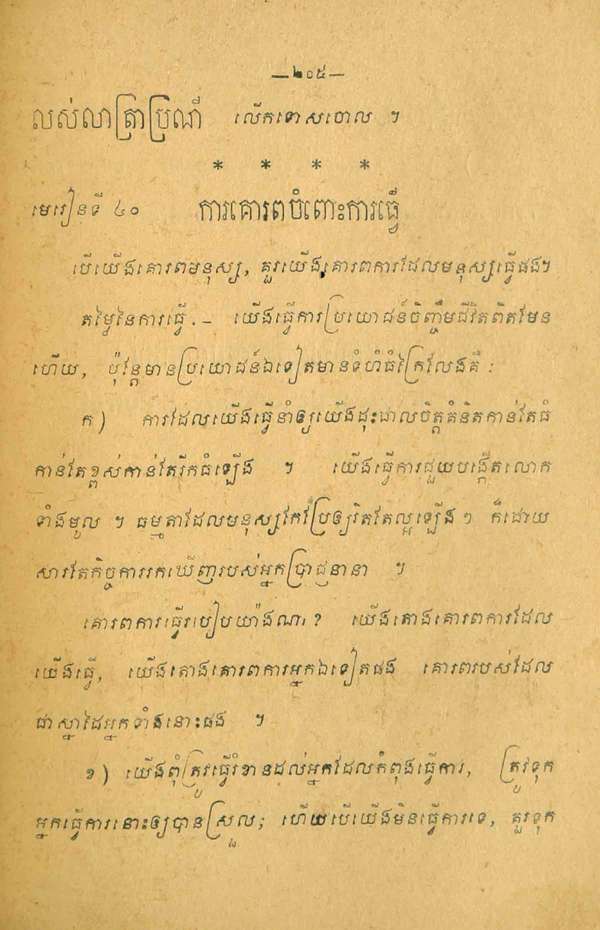 —២០៥—
លស់លាត្រាប្រណី លើកទោសចោល ។
* * * *
មេរៀនទី ៤០ ការគោរពចំពោះការធ្វើ
បើយើងគោរពមនុស្ស, គួរយើងគោរពការដែលមនុស្សធ្វើផង។
តម្លៃនៃការធ្វើ.— យើងធ្វើការប្រយោជន៍ចិញ្ចឹមជីវិតពិតមែន
ហើយ, ប៉ុន្តែមានប្រយោជន៍ឯទៀតមានទំហំធំក្រៃលែងគឺ :
ក) ការដែលយើងធ្វើនាំឲ្យយើងដុះដាលចិត្តគំនិតកាន់តែធំ
កាន់តែខ្ពស់កាន់តែរីកធំឡើង ។ យើងធ្វើការជួយបង្កើតលោក
ទាំងមូល ។ ធម្មតាដែលមនុស្សកែប្រែឲ្យរិតតែល្អឡើង ៗ ក៏ដោយ
សារតែកិច្ចការរកឃើញរបស់អ្នកប្រាជ្ញនានា ។
គោរពការធ្វើរបៀបយ៉ាងណា? យើងតោងគោរពការដែល
យើងធ្វើ, យើងតោងគោរពការអ្នកឯទៀតផង គោរពរបស់ដែល
ជាស្នាដៃអ្នកទាំងនោះផង ។
១) យើងពុំត្រូវធ្វើរំខានដល់អ្នកដែលកំពុងធ្វើការ, ត្រូវទុក
អ្នកធ្វើការនោះឲ្យបានស្រួល; ហើយបើយើងមិនធ្វើការទេ, គួរទុក